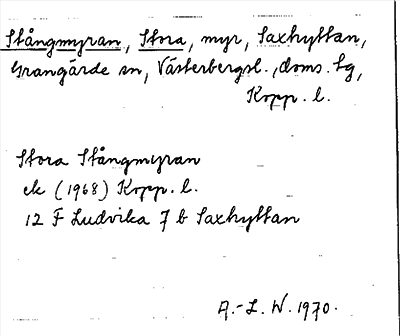 Stångmyran, Stora, myr, Saxhyttan,
Grangärde sn, Västerbergsl., doms. tg,
Kopp. l.
Stora Stångmyran
ek (1968) Kopp. l.
12 F Ludvika 7 b Saxhyttan
A.-L. W. 1970.